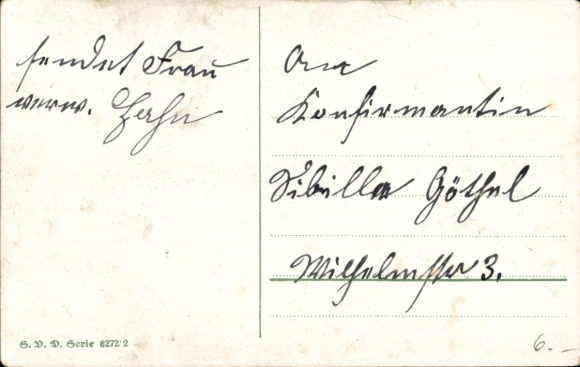 sendet Frau
verw. Hahn
An
Konfirmantin
Sibilla Göthel
Wilhelmstr 3.
S. V. D. Serie 6272/2
6.-